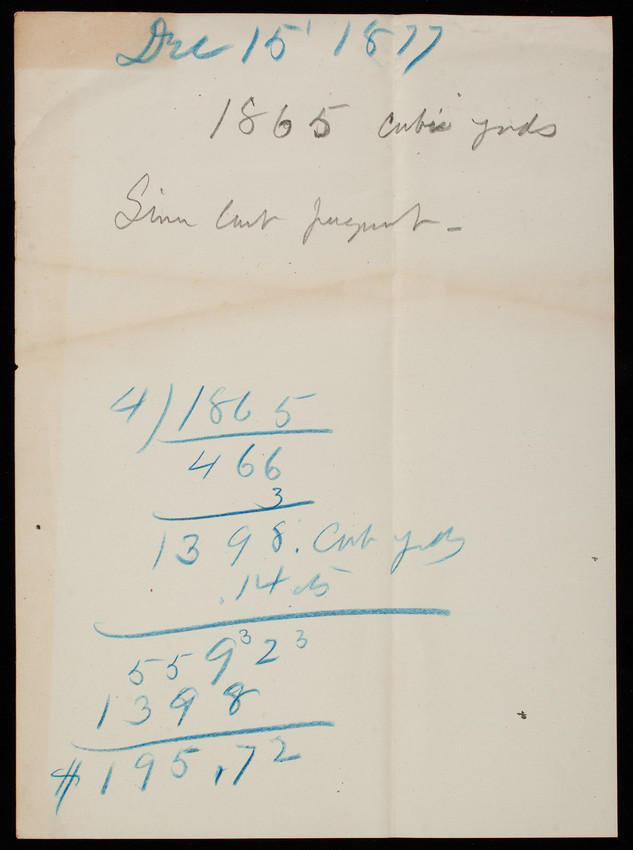 Dec 15 1877
1865 cubic yards
Since last payment -
4)1865
466
3
1398. Cub yds
.14 cts
55923 3
1398
$195.72